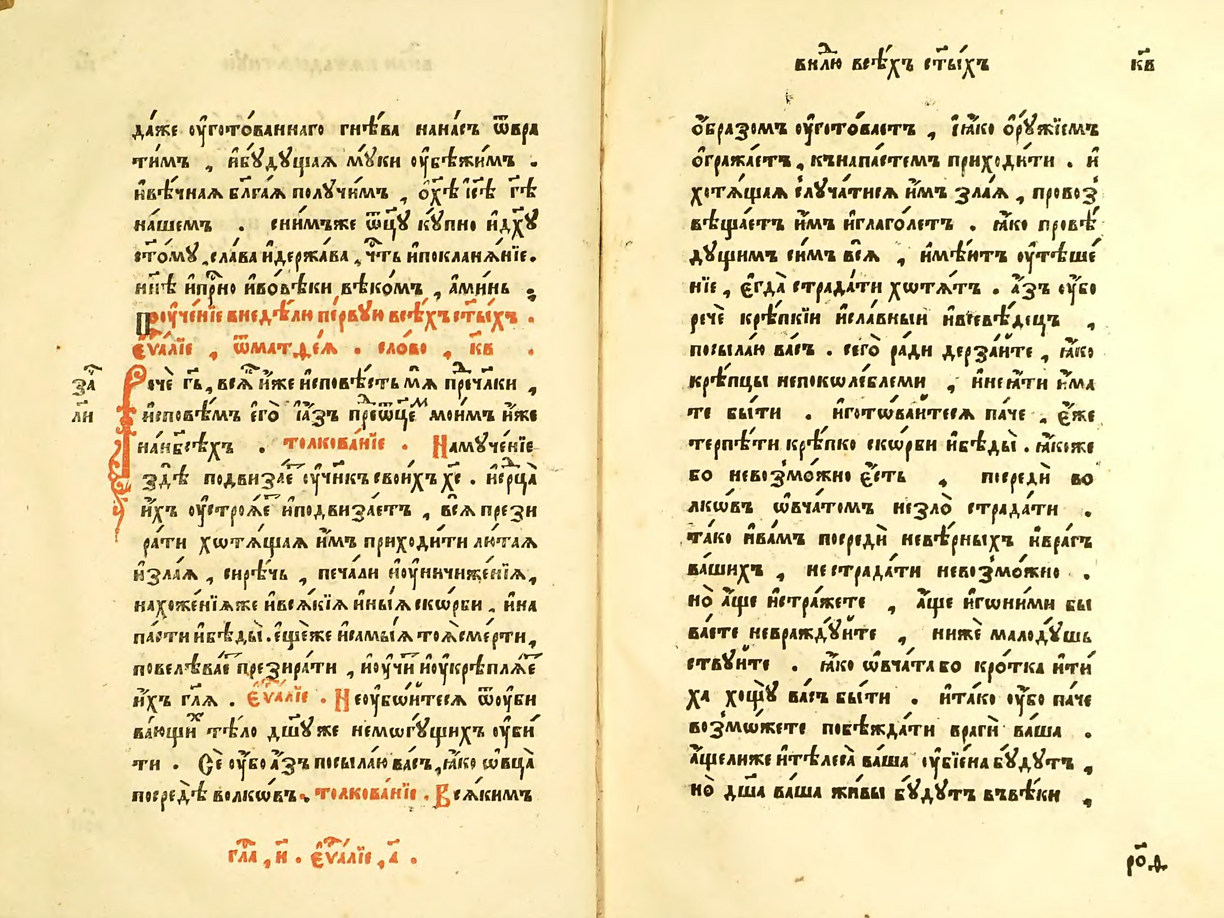 да́же ᲂу҆гото́ваннаго гнѣ́ва нана́съ ѿвра
тимъ , ибꙋ́дꙋщаѧ мꙋ́ки ᲂу҆бѣжи́мъ .
ивѣ́чнаѧ бл҃га́ѧ полꙋ́чимъ , ѡ҆хѣ̀ і҆с҃ѣ гд҇ѣ
на́шемъ . снимъже ѿц҃ꙋ̀ кꙋ́пно идх҃ꙋ
ст҃о́мꙋ , сла́ва идержа́ва , чт҇ь ипоклана́нїе .
нн҃ѣ ипр҇но ивовѣ́ки вѣко́мъ , а҆ми́нь .
Поу҆че́нїе внедѣ́лю пе́рвꙋю всѣ́хъ ст҃ы́хъ .
є҆ѵⷢ҇а́лїе , ѿматѳе́ѧ . сло́во , к҃в .
за҇
ли
Рече́ гд҇ь , всѧ́ иже исповѣ́сть мѧ пре́чл҃ки ,
исповѣ́мъ є҆го̀ і҆а҆́зъ пре́ѿцемъ мои́мъ и҆́же
нанб҃сѣ́хъ . толкова́нїе . Намꙋче́нїе
здѣ̀ подвиза́етъ ᲂу҆чн҃къ свои́хъ хе . исрц҃а̀
и҆́хъ ᲂу҆строѧ́етъ иподвиза́етъ , всѧ прези
ра́ти хотѧ́щаѧ и҆́мъ приходи́ти лю́таѧ
изла́ѧ , сирѣ́чь , печа́ли иᲂу҆ничиже́нїѧ ,
нахоже́нїѧже ивсѧ́кїѧ ины́ѧ ско́рби , ина
па́сти ибѣды̀ . є҆ще́же иса́мыѧ тоѧ̀ сме́рти ,
повелѣва́етъ презира́ти , иᲂу҆чи́тъ иᲂу҆крѣплѧ́етъ
и҆́хъ гл҃ѧ . є҆ѵⷢ҇а́лїе . Неᲂубо́йтесѧ ѿᲂу҆би
ва́ющихъ тѣ́ло дш҃ꙋ же немогꙋ́щихъ ᲂу҆би́
ти . Се́ ᲂу҆бо а҆́зъ посыла́ю ва́съ , ꙗ҆́ко ѻ҆́вца
посредѣ̀ волкѡ́въ . толкова́нїе . Всѧ́кимъ
гл҃а , и҃ . є҆ѵⷢ҇а́лїе , а҃ .
внⷣлю всѣ́хъ ст҃ы́хъ
к҃в
ѻ҆́бразомъ ᲂу҆гото́ваетъ , і҆ꙗ҆́ко ѻ҆рꙋ́жїемъ
ѻ҆гражда́етъ , кънапа́стемъ приходи́ти . и҆
хотѧ́щаѧ случа́тисѧ и҆́мъ зла́ѧ , провоз
вѣща́етъ и҆́мъ иглаго́летъ . ꙗ҆́ко провѣ́
дꙋщимъ си́мъ всѧ̀ , имѣ́ꙗтъ ᲂу҆тѣше́
нїе , є҆гда̀ страда́ти хотѧ́тъ . а҆́зъ ᲂу҆́бо
речѐ крѣ́пкїи исла́вныи ивсевѣ́децъ ,
посыла́ю ва́съ . сего̀ ра́ди дерза́йте , ꙗ҆́ко
крѣ́пцы непоколе́блеми , инеꙗ҆́ти и҆́ма
те бы́ти . иготовайтесѧ па́че . є҆́же
терпѣ́ти крѣ́пко ско́рби ибѣды̀ . ꙗ҆́коже
бо невозмо́жно є҆́сть , посредѝ во
лко́въ ѻ҆вча́томъ незло̀ страда́ти .
та́ко ива́мъ посредѝ невѣ́рныхъ ивра́гъ
ва́шихъ , нестрада́ти невозмо́жно .
но̀ а҆́ще истра́жете , а҆́ще иго́ними бы
ва́ете невражду́йте , нижѐ малодꙋ́шь
ствꙋ́йте . ꙗ҆́ко ѻ҆вча́та бо кро́тка ити́
ха хощꙋ̀ ва́съ бы́ти . ита́ко ᲂу҆́бо па́че
возмо́жете побѣжда́ти врагѝ ва́ша .
а҆́щелиже ителеса̀ ва́ша ᲂу҆бїе́на бꙋ́дꙋтъ ,
но̀ дш҃а ва́ша жи́вы бꙋ́дꙋтъ въвѣ́ки ,